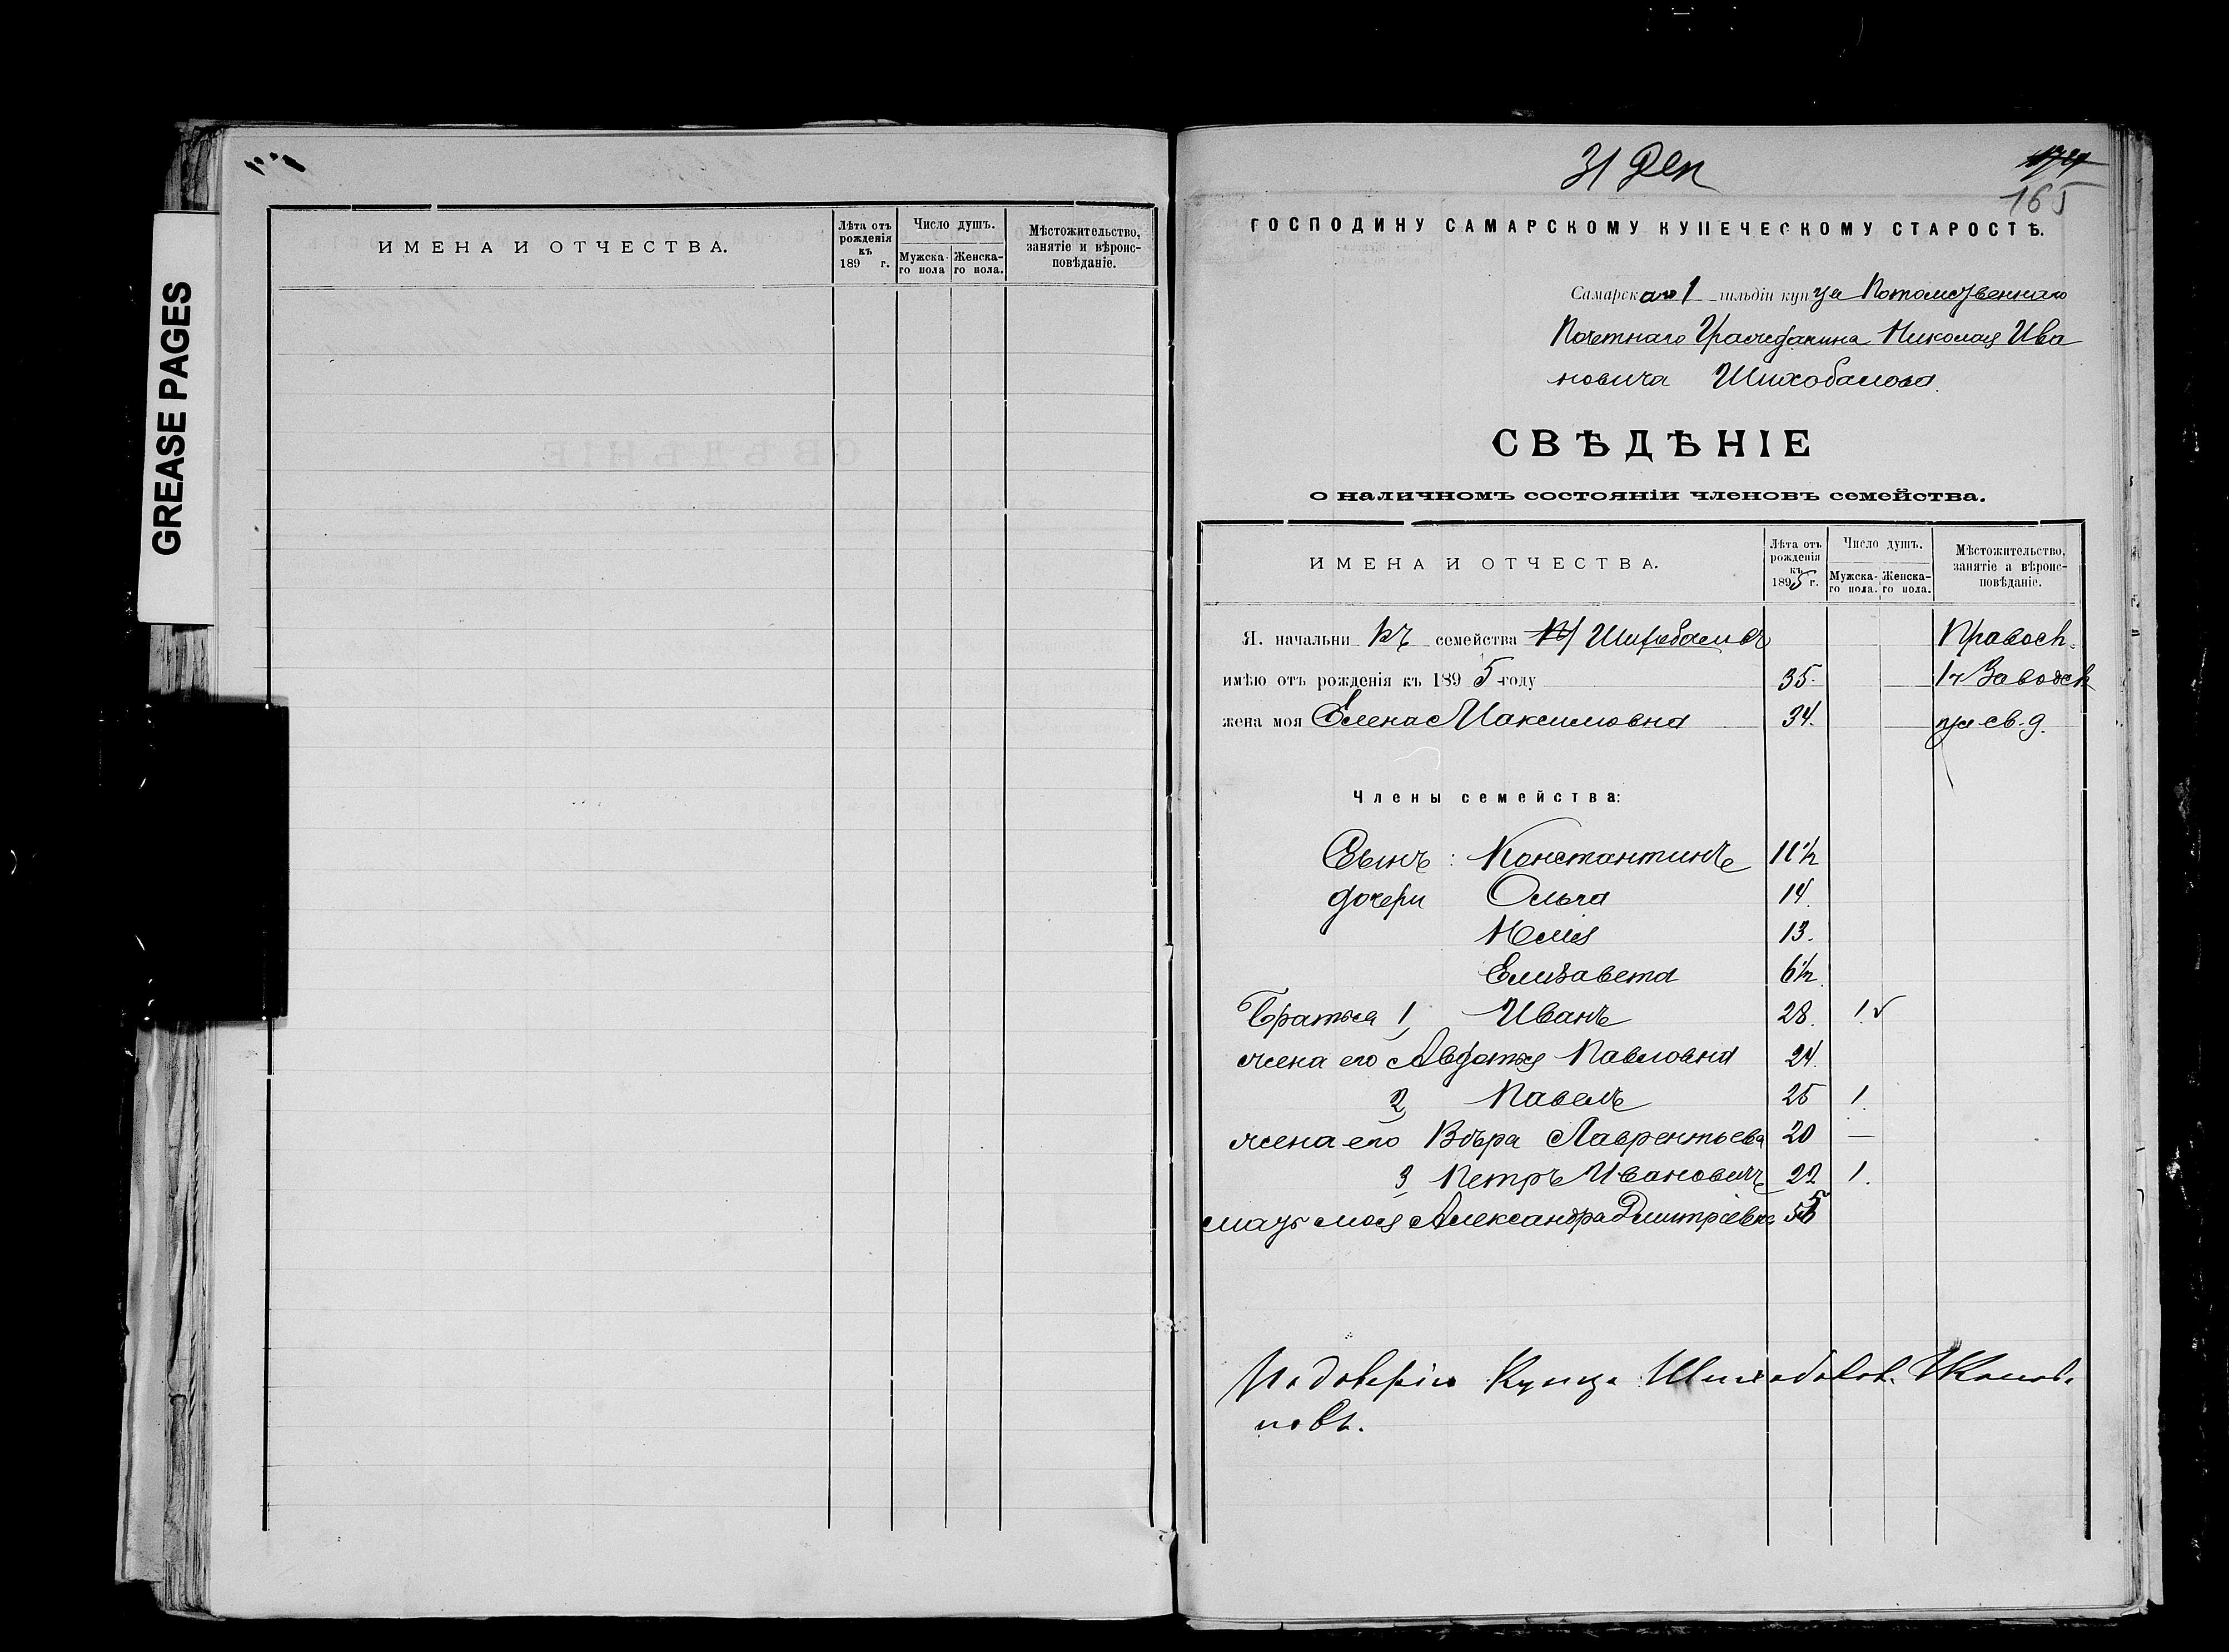 GREASE PAGES
ИМЕНА И ОТЧЕСТВА.
Лѣта отъ рожденія къ 189 г.
Число душъ.
Мужска-го пола
Женска-го пола.
Мѣстожительство, занятіе и вѣроис-повѣданіе.
31 Дек
165
ГОСПОДИНУ САМАРСКОМУ КУПЕЧЕСКОМУ СТАРОСТѢ.
Самарскаго 1 гильдіи купца Потомственнаго
Почетнаго Гражданина Николая Ива
новича Шихобалова.
СВѢДѢНІЕ
о наличномъ состояніи членовъ семейства.
ИМЕНА И ОТЧЕСТВА.
Лѣта отъ рожденія къ 1895 г.
Число душъ.
Мужска-го пола.
Женска-го пола.
Мѣстожительство, занятіе а вѣроис-повѣданіе.
Я. начальникъ семейства Шихобаловъ Правосл.
имѣю отъ рожденія къ 1895 году 35. 1ч Заводск
жена моя Елена Максимовна 34. св. д.
Члены семейства:
Сынъ: Константинъ 11½
дочери Ольга 14.
Юлія 13.
Елизавета 6½.
Братья 1, Иванъ 28. 1.
жена его Авдотья Павловна 24.
2, Павелъ 25 1.
жена его Вѣра Лаврентьева 20 —
3, Петръ Ивановичъ 22 1.
мать моя Александра Дмитріевна
По доверію Купца